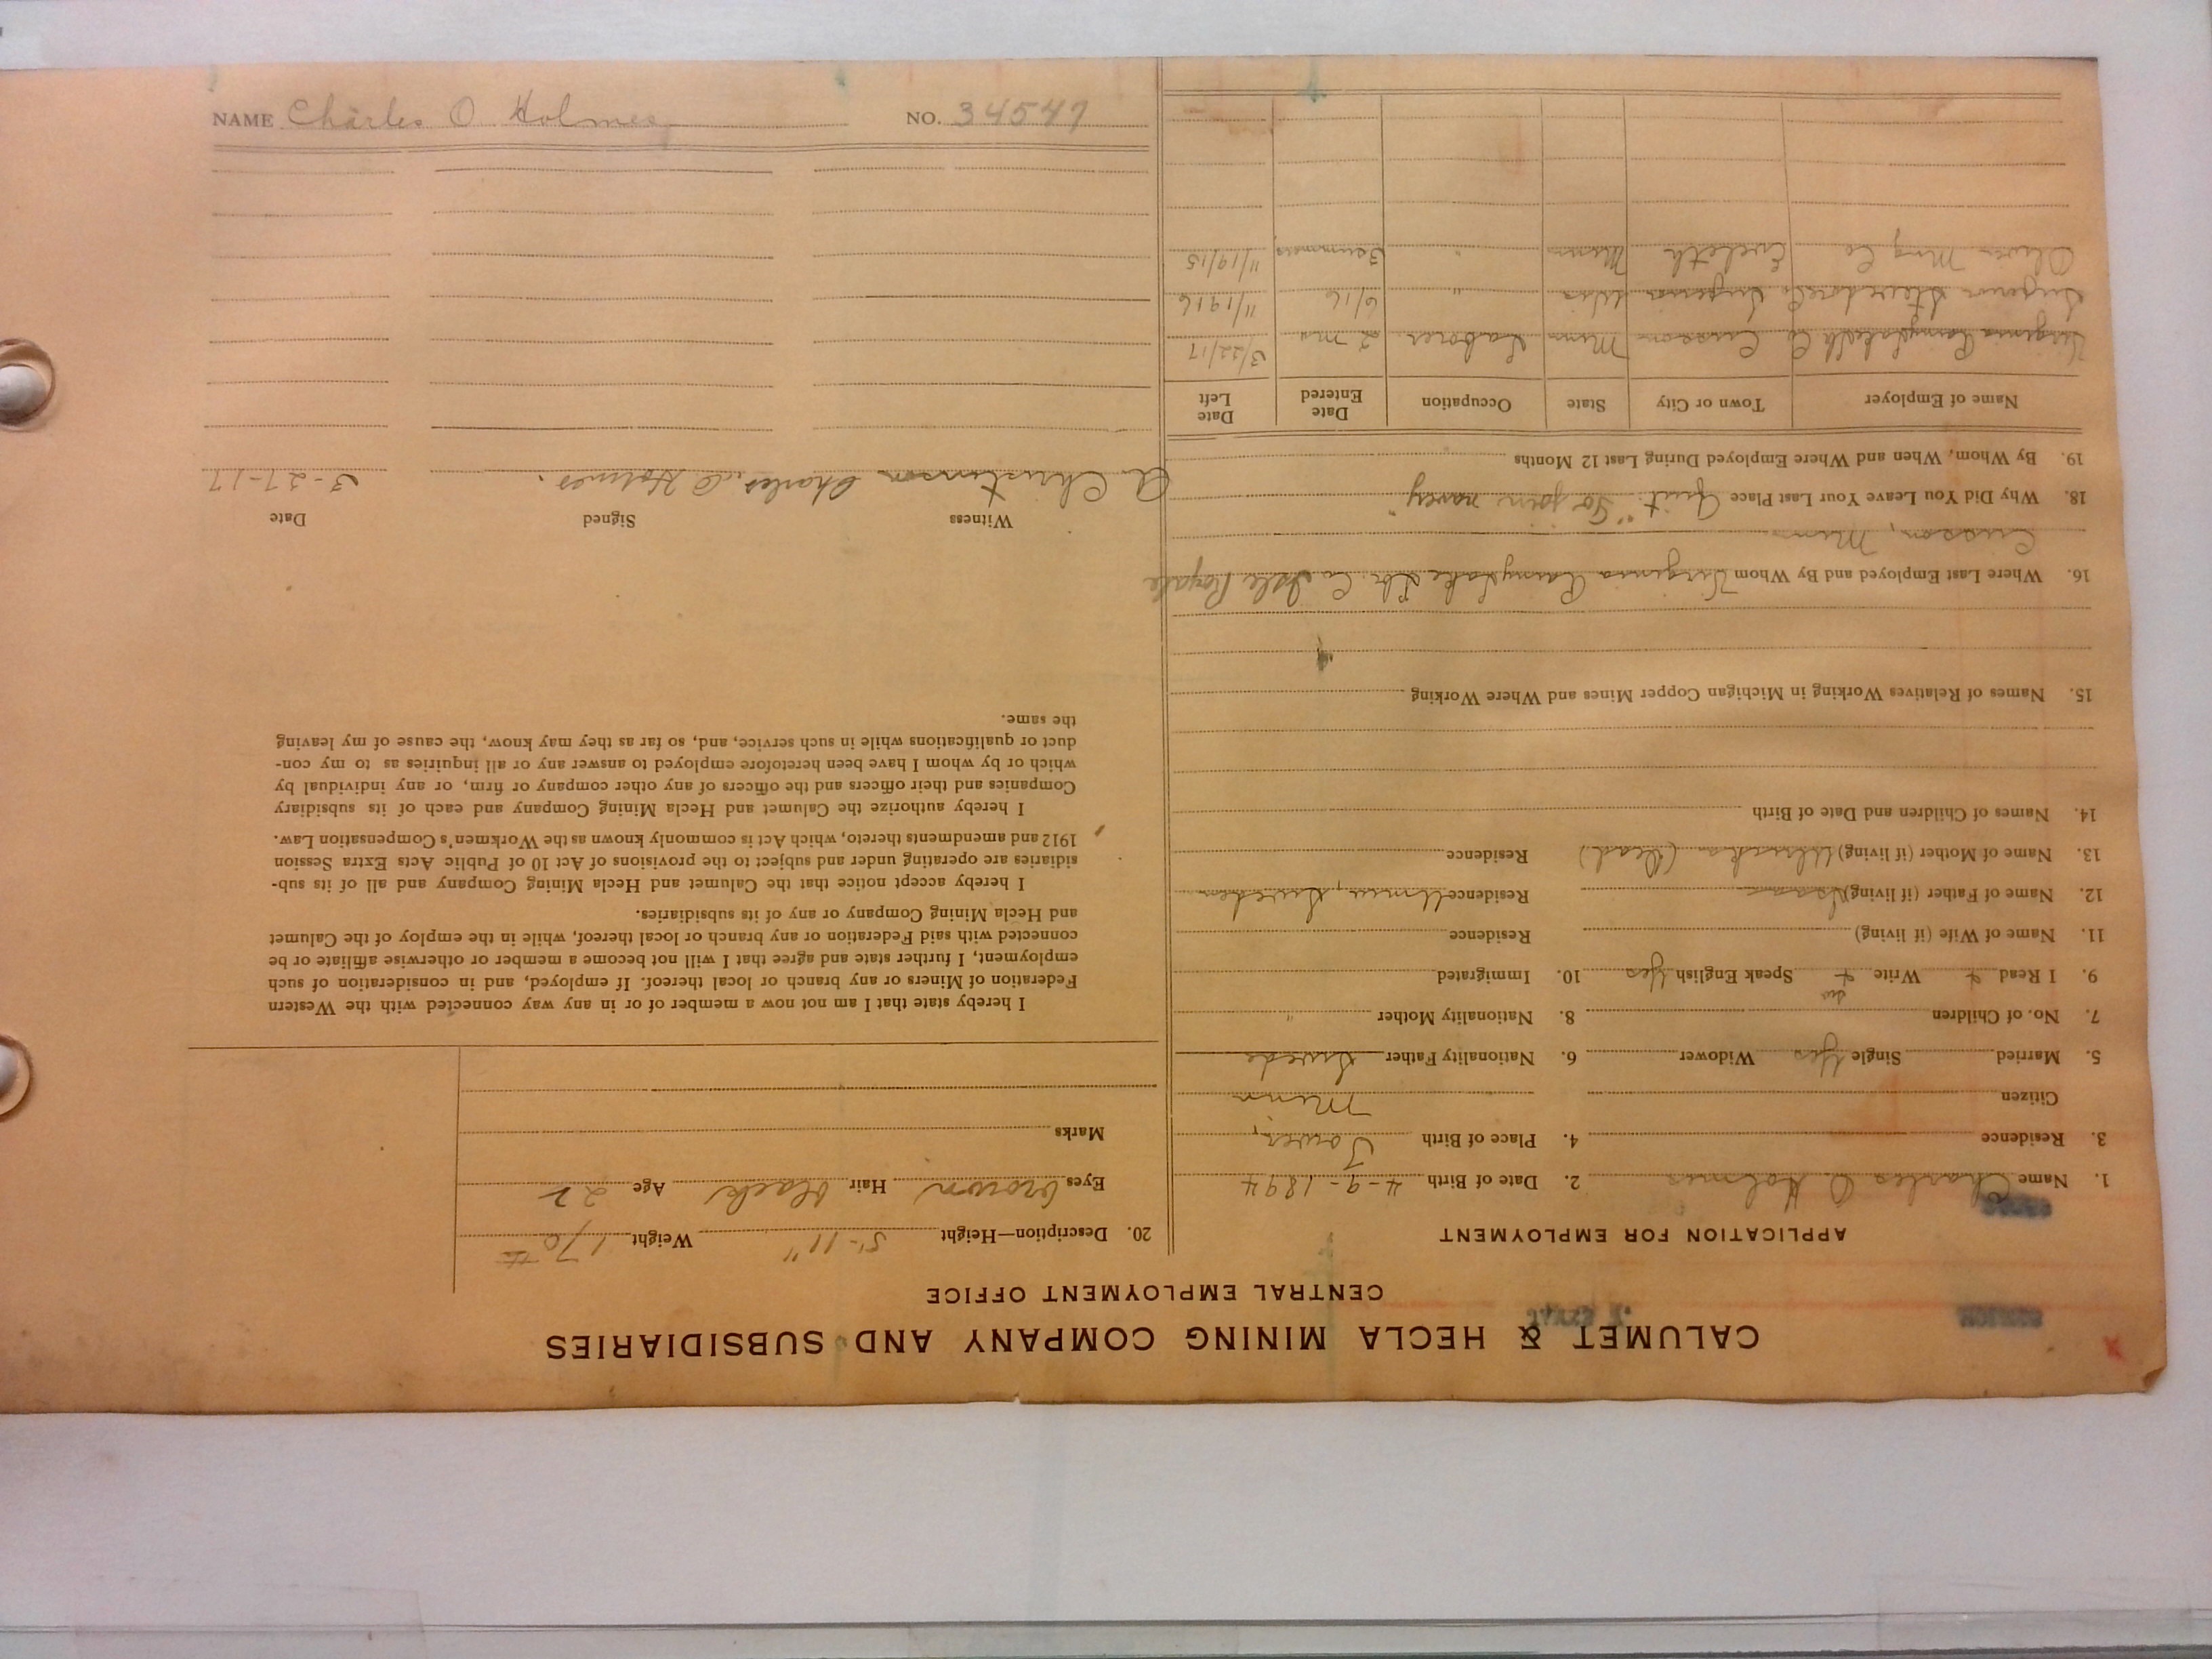 CALUMET & HECLA MINING COMPANY AND SUBSIDIARIES
CENTRAL EMPLOYMENT OFFICE
APPLICATION FOR EMPLOYMENT
1. Name Charles O Holmes 2. Date of Birth 4-9-1894
3. Residence 4. Place of Birth Tower,
Citizen Minn
5. Married Single Yes Widower 6. Nationality Father Swede
7. No. of Children 8. Nationality Mother "
9. I Read Write Speak English Yes 10. Immigrated
11. Name of Wife (if living) Residence
12. Name of Father (if living) Residence Sweden
13. Name of Mother (if living) (Dead) Residence
14. Names of Children and Date of Birth
15. Names of Relatives Working in Michigan Copper Mines and Where Working
16. Where Last Employed and By Whom Virginia Rainy Lake Lbr. Co Isle Royale
Cusson, Minn
18. Why Did You Leave Your Last Place Quit. "To join navey"
19. By Whom, When and Where Employed During Last 12 Months
Name of Employer Town or City State Occupation Date Entered Date Left
Virginia Rainy Lake Co Cusson Minn Laborer 2 mos 3/22/17
Superior Superior Wis " 6/16 11/1916
Oliver Mng Co Eveleth Minn " 3 summers 11/19/15
20. Description—Height 5'-11" Weight 170
Eyes brown Hair black Age 22
Marks
I hereby state that I am not now a member of or in any way connected with the Western
Federation of Miners or any branch or local thereof. If employed, and in consideration of such
employment, I further state and agree that I will not become a member or otherwise affiliate or be
connected with said Federation or any branch or local thereof, while in the employ of the Calumet
and Hecla Mining Company or any of its subsidiaries.
I hereby accept notice that the Calumet and Hecla Mining Company and all of its sub-
sidiaries are operating under and subject to the provisions of Act 10 of Public Acts Extra Session
1912 and amendments thereto, which Act is commonly known as the Workmen's Compensation Law.
I hereby authorize the Calumet and Hecla Mining Company and each of its subsidiary
Companies and their officers and the officers of any other company or firm, or any individual by
which or by whom I have been heretofore employed to answer any or all inquiries as to my con-
duct or qualifications while in such service, and, so far as they may know, the cause of my leaving
the same.
Witness Signed Date
A Christenson Charles O Holmes. 3-27-17
NAME Charles O Holmes NO. 34547